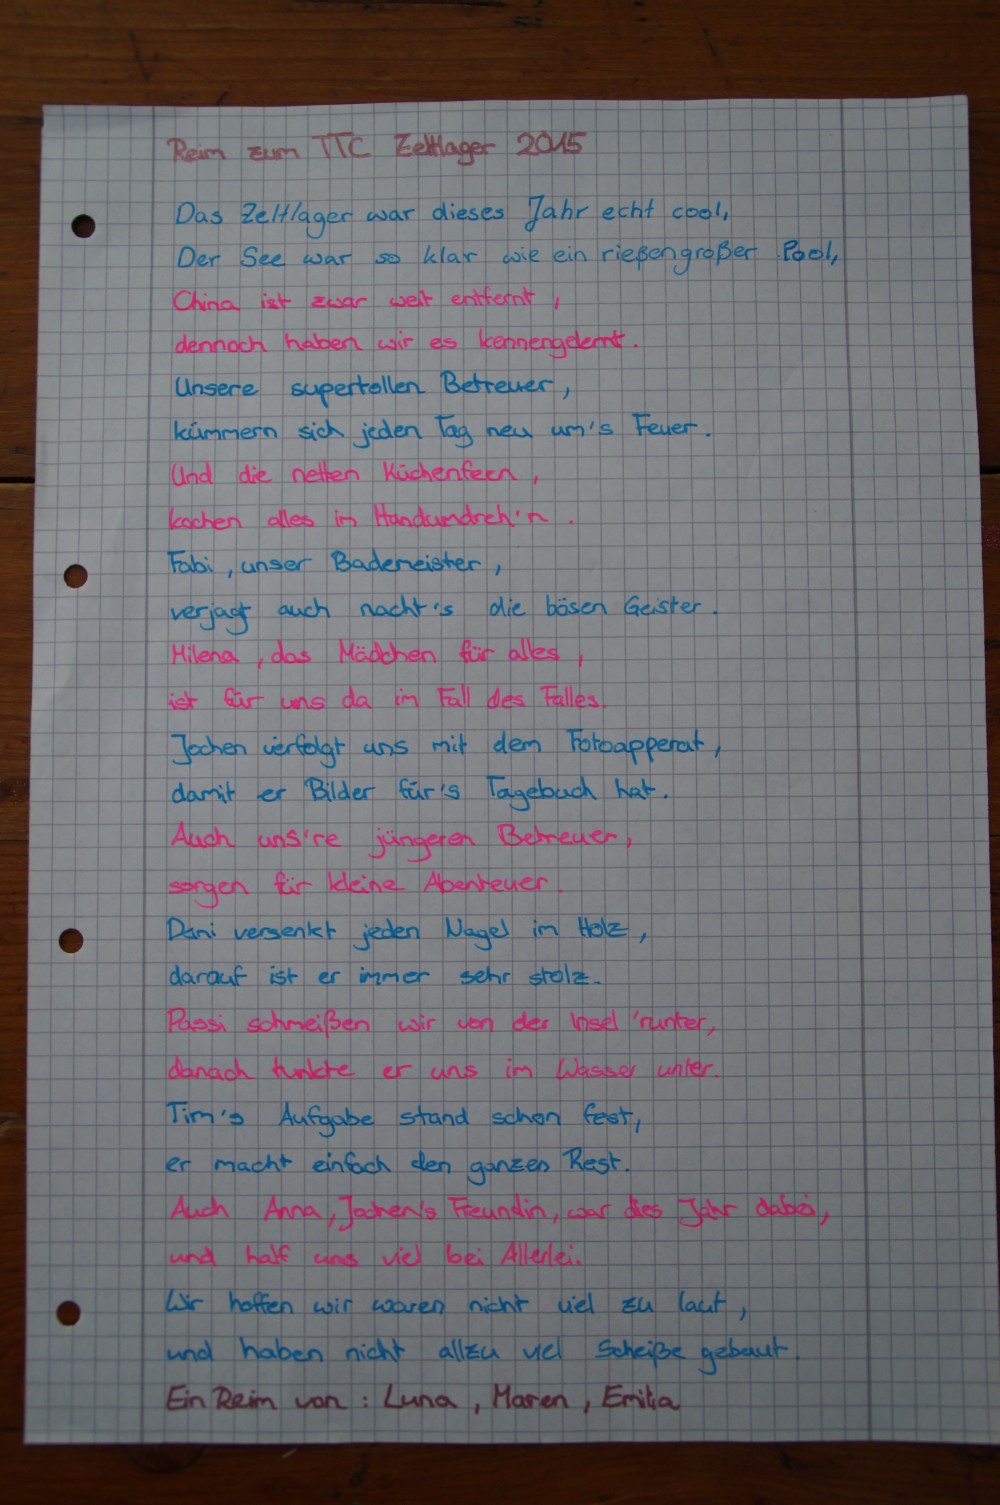 Reim zum TTC Zeltlager 2015
Das Zeltlager war dieses Jahr echt cool,
Der See war so klar wie ein rießengroßer Pool,
China ist zwar weit entfernt,
dennoch haben wir es kennengelernt.
Unsere supertollen Betreuer,
kümmern sich jeden Tag neu um's Feuer.
Und die netten Küchenfeen,
kochen alles im Handumdreh'n.
Fabi, unser Bademeister,
verjagt auch nacht's die bösen Geister.
Milena, das Mädchen für alles,
ist für uns da im Fall des Falles.
Jochen verfolgt uns mit dem Fotoapperat,
damit er Bilder für's Tagebuch hat.
Auch uns're jüngeren Betreuer,
sorgen für kleine Abenteuer.
Dani versenkt jeden Nagel im Holz,
darauf ist er immer sehr stolz.
Passi schmeißen wir von der Insel 'runter,
danach tunkte er uns im Wasser unter.
Tim's Aufgabe stand schon fest,
er macht einfach den ganzen Rest.
Auch Anna, Jochen's Freundin, war dies Jahr dabei,
und half uns viel bei Allerlei.
Wir hoffen wir waren nicht viel zu laut,
und haben nicht allzu viel Scheiße gebaut.
Ein Reim von: Luna, Maren, Emilia